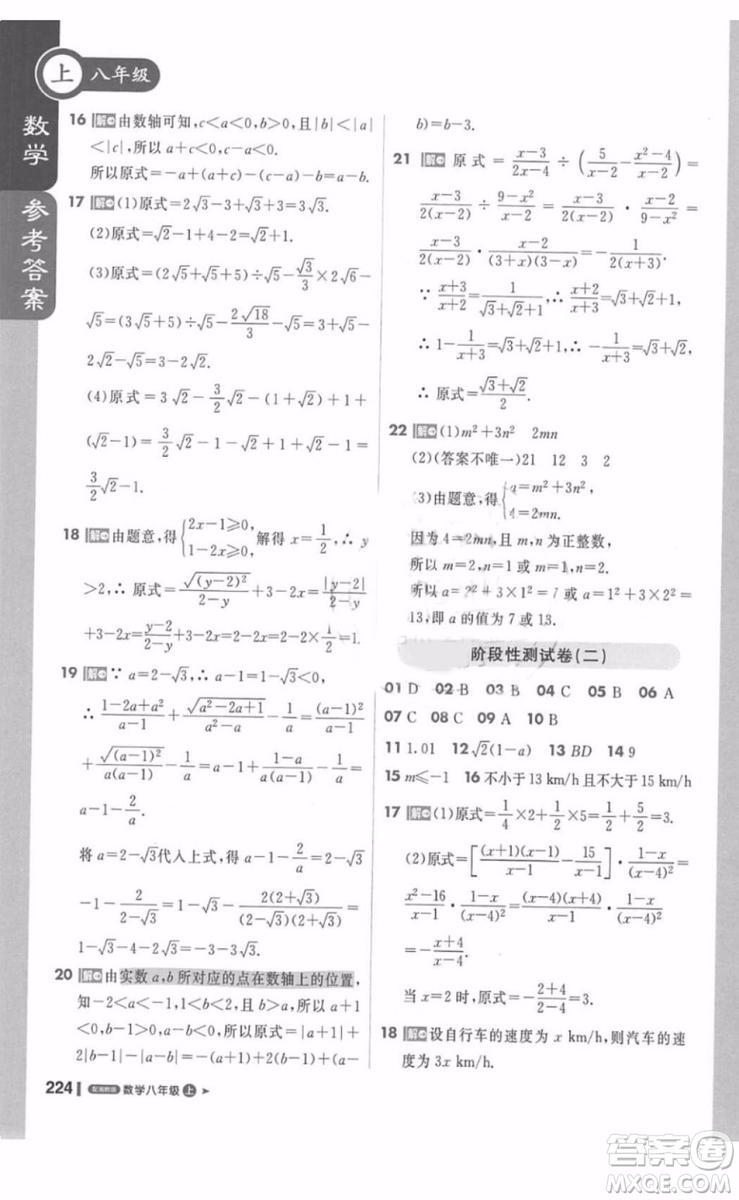 上 八年级
数学
参考答案
16 解 由数轴可知,c<a<0,b>0,且|b|<|a|
<|c|,所以 a+c<0,b-c>0.
所以原式=-a+(a+c)-(b-c)-b=
17 解 (1)原式=2√3-3+√3+3=3√3.
(2)原式=√2-1+√2+1=2√2.
(3)原式=(2√5+√5+5)÷√5-√3/3×2√18
÷√5=(3√5+5)÷√5-2√18/3=3+√5-
2√2.
(4)原式=3√2-3/2√2-(1+√2)+1×
(√2-1)=3/2√2-1-√2+1+√2-1=
3/2√2-1.
18 解 由题意,得{2x-1⩾0, 1-2x⩾0, 解得 x=1/2,∴ y
>2,∴ 原式=√(y-2)²/(2-y)+3-2x=|y-2|/(2-y)
+3-2x=(y-2)/(2-y)+3-2x=-1+3-2×1/2=1.
19 解 ∵ a=2-√3,∴ a-1=1-√3<0,
∴ (1-2a+a²)/(a-1)+√(a²-2a+1)/(a²-a)-1/a=(a-1)²/(a-1)+
√(a-1)²/(a(a-1))-1/a=a-1+(1-a)/(a(a-1))-1/a=
a-1-2/a.
将 a=2-√3代入上式,得 a-1-2/a=2-√3
-1-2/(2-√3)=1-√3-2(2+√3)/((2-√3)(2+√3))=
1-√3-4-2√3=-3-3√3.
20 解 由实数 a,b 所对应的点在数轴上的位置,
知-2<a<-1,1<b<2,所以 a+1
<0,b-1>0,a-b<0,所以原式=|a+1|+
2|b-1|-|a-b|=-(a+1)+2(b-1)+(a-
b)=b-3.
21 解 原式=(x-3)/(2x-4)÷(5/(x-2)-(x²-4)/(x-2))=
(x-3)/(2(x-2))÷(9-x²)/(x-2)=(x-3)/(2(x-2))·(x-2)/(9-x²)=
(x-3)/(2(x-2))·(x-2)/((3+x)(3-x))=-1/(2(x+3)).
∵ (x+3)/(x+2)=1/(√3+√2+1),∴ (x+2)/(x+3)=√3+√2+1,
∴ 1-1/(x+3)=√3+√2+1.∴ -1/(x+3)=√3+√2,
∴ 原式=(√3+√2)/2.
22 解 (1)m²+3n² 2mn
(2)(答案不唯一)21 12 3 2
(3)由题意,得{a=m²+3n², 4=2mn.
因为 4=2mn,且 m,n 为正整数,
所以 m=2,n=1 或 m=1,n=2.
所以 a=2²+3×1²=7 或 a=1²+3×2²=
13,即 a 的值为 7 或 13.
阶段性测试卷(二)
01 D 02 B 03 B 04 C 05 B 06 A
07 C 08 C 09 A 10 B
11 1.01 12 √2(1-a) 13 BD 14 9
15 m⩽-1 16 不小于 13 km/h 且不大于 15 km/h
17 解 (1)原式=1/4×2+1/2×5=1/2+5/2=3.
(2)原式=[(x+1)(x-1)/(x-1)-15/(x-1)]·(x-1)/(x-4)²=
(x²-16)/(x-1)·(1-x)/(x-4)²=(x-4)(x+4)/(x-1)·(1-x)/(x-4)²
=-(x+4)/(x-4).
当 x=2 时,原式=-(2+4)/(2-4)=3.
18 解 设自行车的速度为 x km/h,则汽车的速
度为 3x km/h.
224 配湘教版 数学八年级 上
答案卷